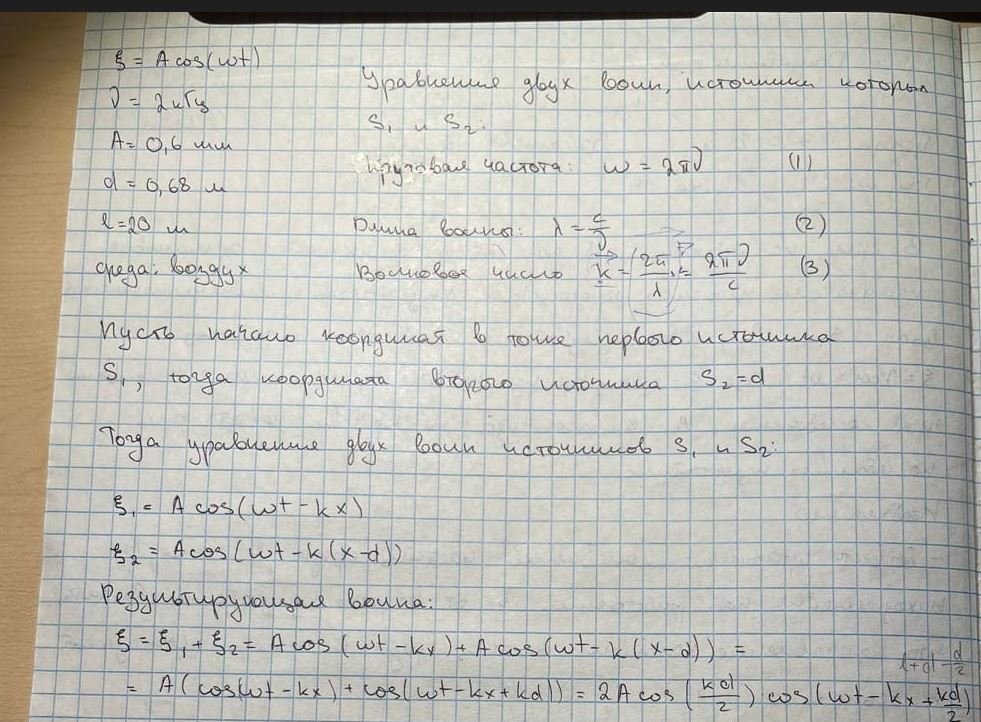 ξ = A cos(ωt)
ν = 2 кГц
A = 0,6 мм
d = 0,68 м
l = 20 м
среда: воздух
Уравнение двух волн, источники которых
S₁ и S₂:
Круговая частота: ω = 2πν (1)
Длина волны: λ = c/ν (2)
Волновое число k = 2π/λ = 2πν/c (3)
Пусть начало координат в точке первого источника
S₁, тогда координата второго источника S₂ = d
Тогда уравнение двух волн источников S₁ и S₂:
ξ₁ = A cos(ωt - kx)
ξ₂ = A cos(ωt - k(x-d))
Результирующая волна:
ξ = ξ₁ + ξ₂ = A cos(ωt - kx) + A cos(ωt - k(x-d)) =
l+d-d/2
= A(cos(ωt - kx) + cos(ωt - kx + kd)) = 2A cos(kd/2) cos(ωt - kx + kd/2)